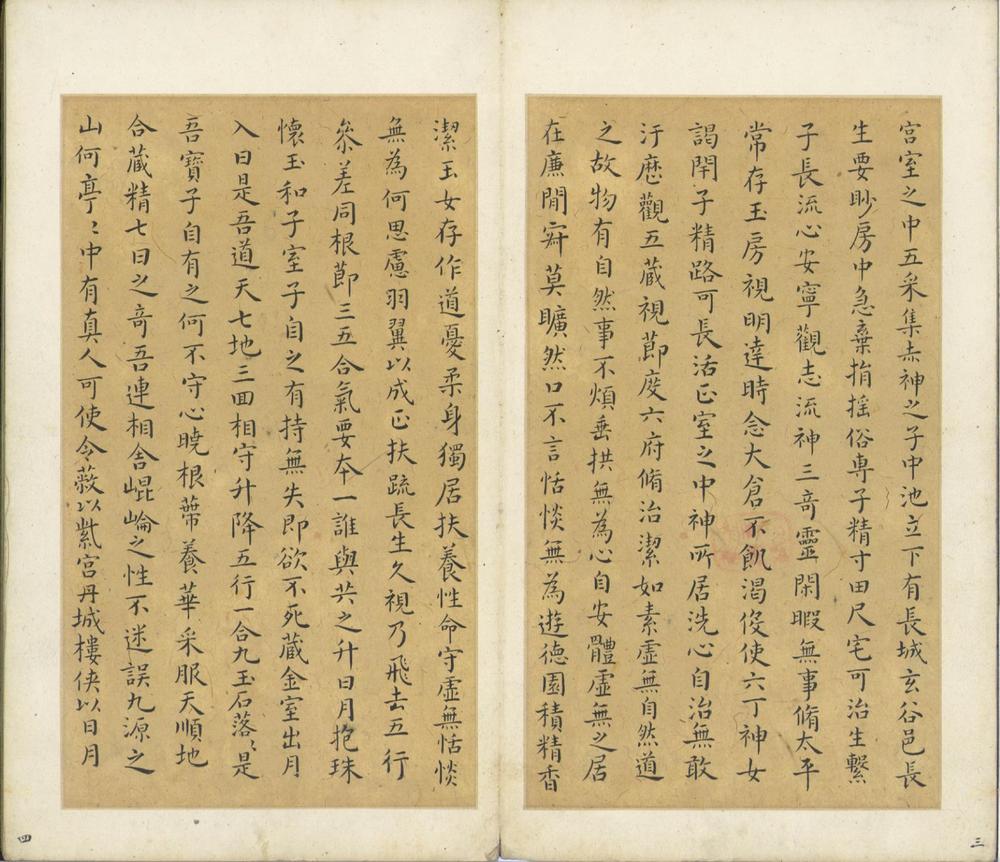 宮室之中五采集赤神之子中池立下有長城玄谷邑長
生要眇房中急棄捐搖俗専子精寸田尺宅可治生繫
子長流心安寧觀志流神三竒靈閑暇無事脩太平
常存玉房視明達時念大倉不飢渴役使六丁神女
謁閇子精路可長活正室之中神所居洗心自治無敢
汙歷觀五藏視莭度六府脩治潔如素虛無自然道
之故物有自然事不煩垂拱無為心自安體虛無之居
在廉閒𡧯莫曠然口不言恬惔無為遊德園積精香
潔玉女存作道憂柔身獨居扶養性命守虛無恬惔
無為何思慮羽翼以成正扶疏長生久視乃飛去五行
叅差同根莭三五合氣要夲一誰與共之升日月抱珠
懷玉和子室子自之有持無失即欲不死藏金室出月
入日是吾道天七地三回相守升降五行一合九玉石落〻是
吾寶子自有之何不守心曉根蔕養華采服天順地
合藏精七日之竒吾連相舍崐崘之性不迷誤九源之
山何亭〻中有真人可使令蔽以紫宮丹城樓俠以日月
三
四